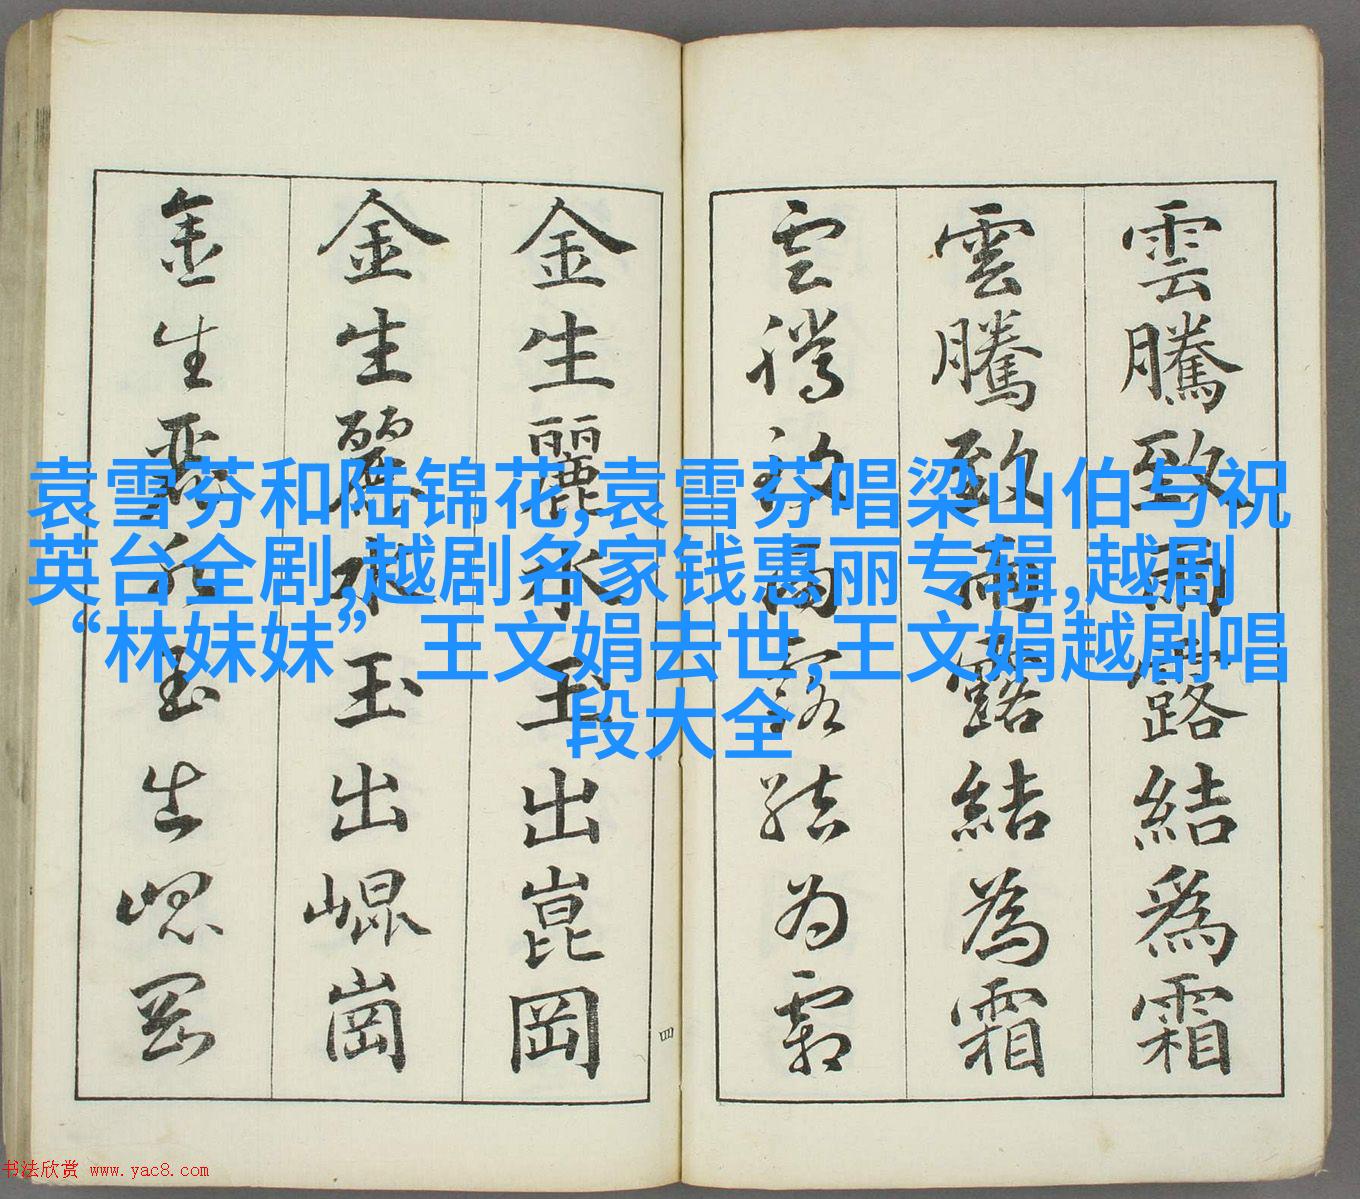 雲騰致雨露結爲霜
雲騰致雨露結為霜
雲騰致雨露結為霜
金生麗水玉出崑岡
金生麗水玉出崐崗
金生麗水玉出崐岡
四
袁雪芬和陆锦花,袁雪芬唱梁山伯与祝
英台全剧,越剧名家钱惠丽专辑,越剧
“林妹妹” 王文娟去世,王文娟越剧唱
段大全
书法欣赏 www.yac8.com